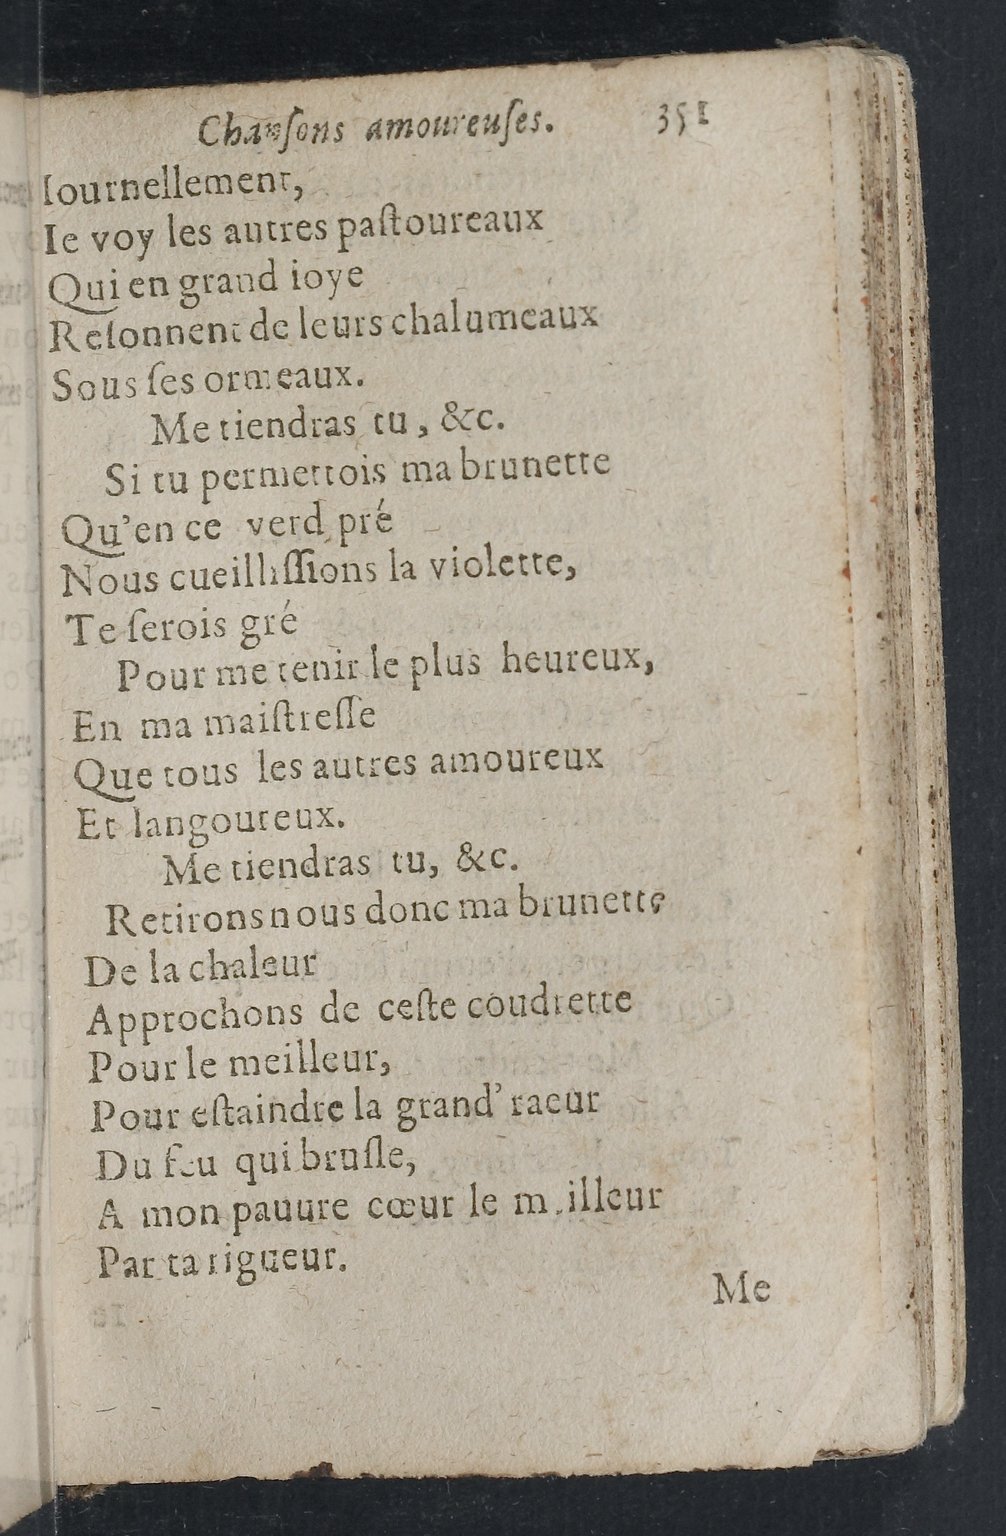 Chanſons amoureuſes. 351
Iournellement,
Ie voy les autres paſtoureaux
Qui en grand ioye
Reſonnent de leurs chalumeaux
Sous ſes ormeaux.
Me tiendras tu, &c.
Si tu permettois ma brunette
Qu'en ce verd pré
Nous cueilliſſions la violette,
Te ſerois gré
Pour me tenir le plus heureux,
En ma maiſtreſſe
Que tous les autres amoureux
Et langoureux.
Me tiendras tu, &c.
Retirons nous donc ma brunette
De la chaleur
Approchons de ceſte coudrette
Pour le meilleur,
Pour eſtaindre la grand' raeur
Du feu qui bruſle,
A mon pauure cœur le meilleur
Par ta rigueur.
Me